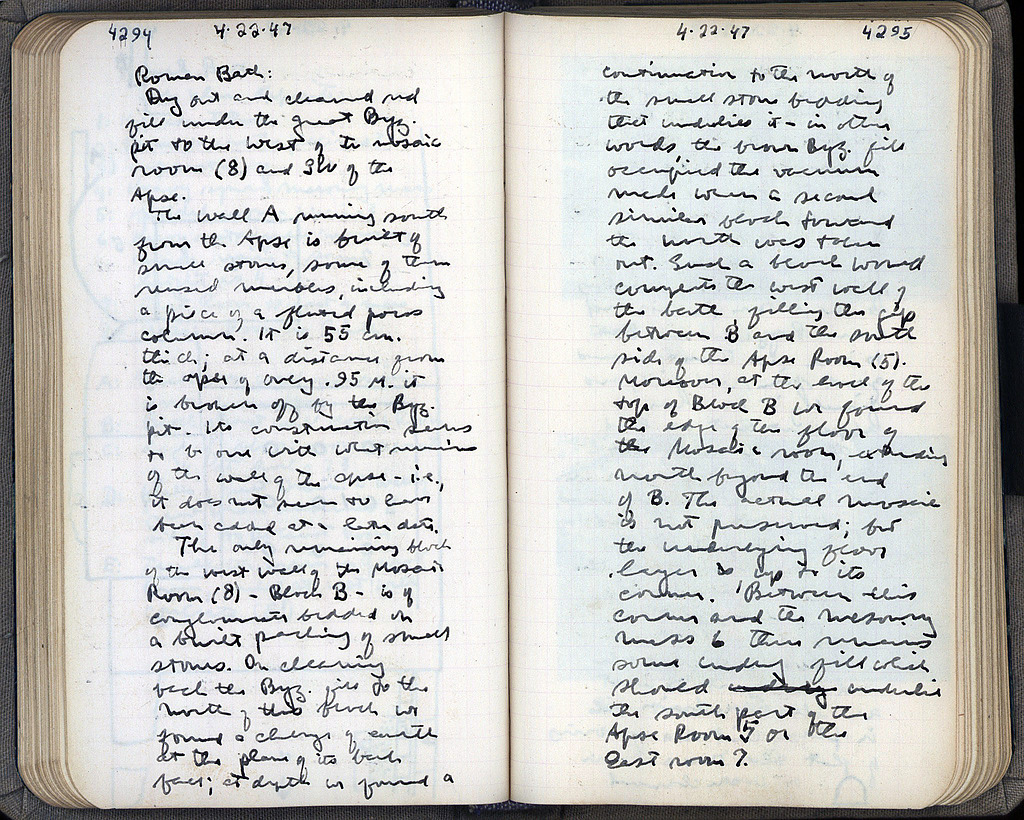 4294 4·22·47
Roman Bath:
Dug out and cleaned red
fill under the great Byz.
pit to the west of the mosaic
room (8) and SW of the
Apse.
The wall A running south
from the Apse is built of
small stones, some of them
reused marbles, including
a piece of a fluted poros
column. It is 55 cm.
thick; at a distance from
the apse of only .95 M. it
is broken off by the Byz.
pit. Its construction seems
to be one with what remains
of the wall of the apse - i.e.,
it does not seem to have
been added at a later date.
The only remaining block
of the west wall of the Mosaic
Room (8) - Block B - is of
conglomerate bedded on
a built packing of small
stones. On cleaning
back the Byz. fill to the
north of this block we
found a change of earth
at the plane of its back
face; at depth we found a
4·22·47 4295
continuation to the north of
the small stone bedding
that underlies it - in other
words, the brown Byz. fill
occupied the vacuum
made when a second
similar block toward
the north was taken
out. Such a block would
complete the west wall of
the bath, filling the gap
between B and the south
side of the Apse Room (5).
Moreover, at the level of the
top of Block B we found
the edge of the floor of
the Mosaic room, extending
north beyond the end
of B. The actual mosaic
is not preserved; but
the underlying floor
layer is up to its
corner. Between this
corner and the masonry
mass 6 there remains
some fill which
should underlie
the south part of the
Apse Room 5 or the
East room 7.